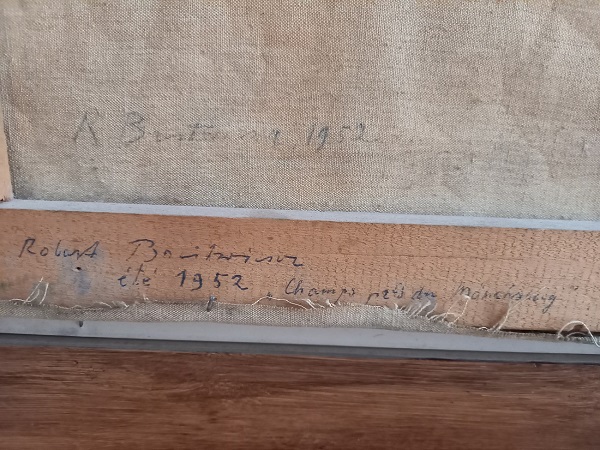 R Breitwieser 1952
Robert Breitwieser
été 1952 „Champs près du Mönchsberg"